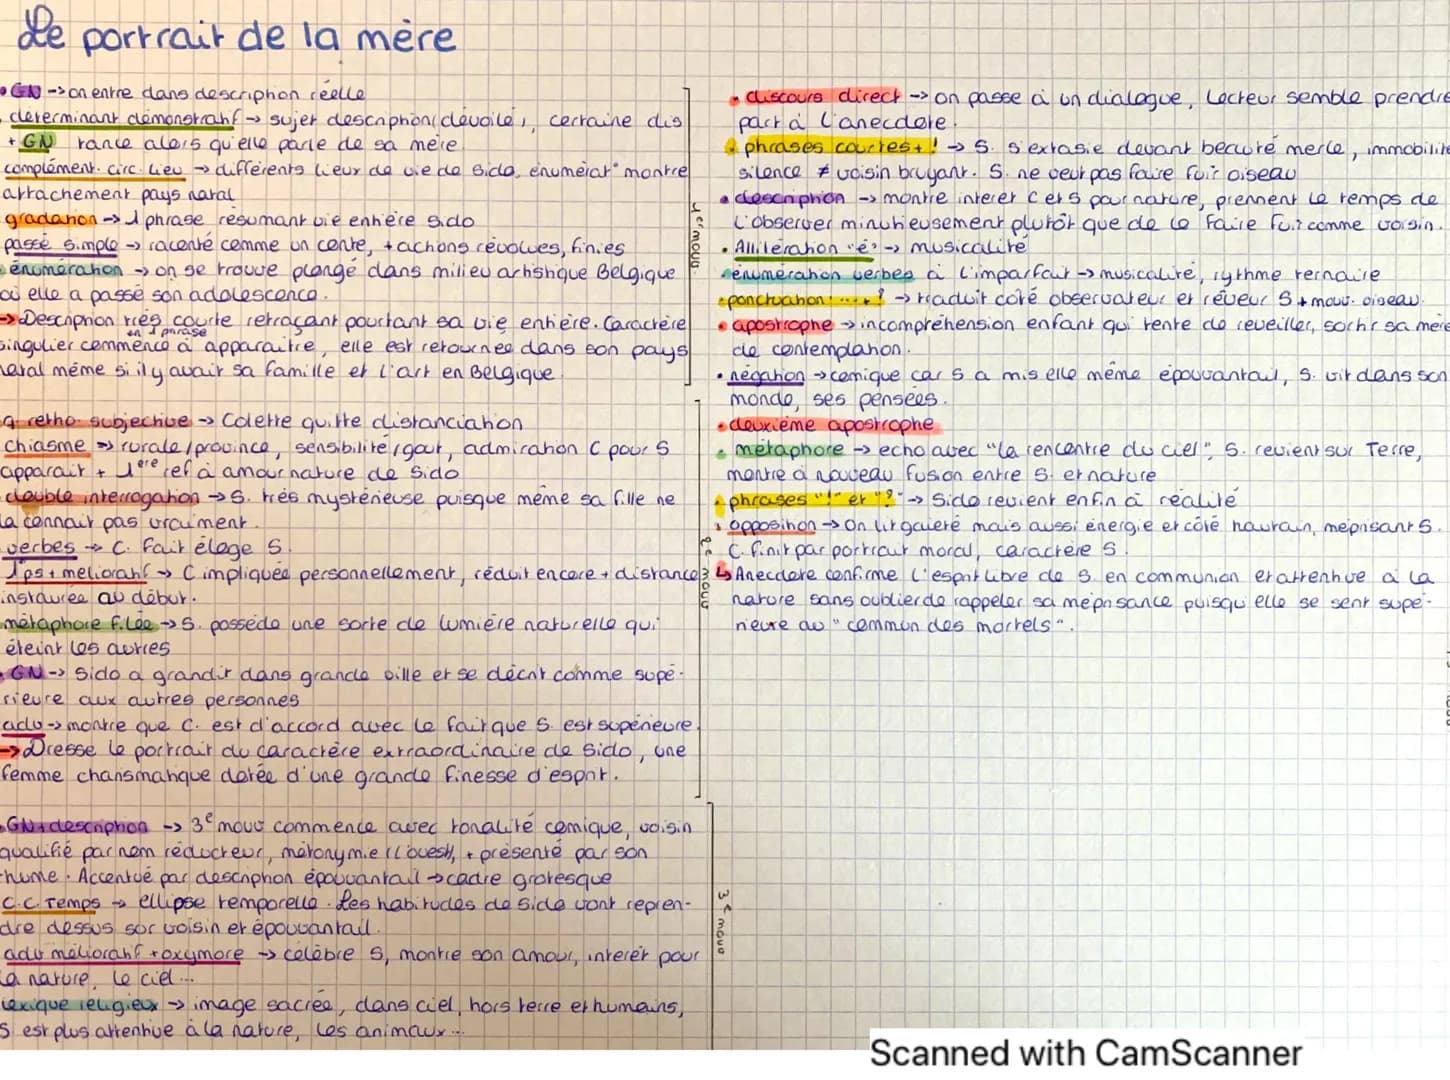 Le portrait de la mère
• GN -> on entre dans description réelle
déterminant démonstratif -> sujet description dévoilé, certaine dis
+ GN tance alors qu'elle parle de sa mère.
complément circ. lieu -> différents lieux de vie de Sido, énumérat° montre
attachement pays natal
gradation -> 1 phrase résumant vie entière Sido
passé simple -> raconté comme un conte, + actions révolues, finies
énumération -> on se trouve plongé dans milieu artistique Belgique
où elle a passé son adolescence.
-> Description très courte retraçant pourtant sa vie entière. Caractère
en 1 phrase
singulier commence à apparaître, elle est retournée dans son pays
natal même si il y avait sa famille et l'art en Belgique.
1er mouv.
q. rétho. subjective -> Colette quitte distanciation
chiasme -> rurale/province, sensibilité/gout, admiration C pour S
apparait + 1ère ref à amour nature de Sido
double interrogation -> S. très mystérieuse puisque même sa fille ne
la connait pas vraiment.
verbes -> C. fait éloge S.
1ps + mélioratif -> C impliquée personnellement, réduit encore + distance
instaurée au début.
métaphore filée -> S. possède une sorte de lumière naturelle qui
éteint les autres
• GN -> Sido a grandit dans grande ville et se décrit comme supé-
rieure aux autres personnes
adv -> montre que C. est d'accord avec le fait que S. est supérieure.
-> Dresse le portrait du caractère extraordinaire de Sido, une
femme charismatique dotée d'une grande finesse d'esprit.
2e mouv
• GN + description -> 3e mouv commence avec tonalité comique, voisin
qualifié par nom réducteur, métonymie (l'ouest), + présenté par son
rhume. Accentué par description épouvantail -> cadre grotesque
C.C. Temps -> ellipse temporelle. Les habitudes de Sido vont repren-
dre dessus sur voisin et épouvantail.
adv mélioratif + oxymore -> célèbre S, montre son amour, interêt pour
la nature, le ciel...
lexique religieux -> image sacrée, dans ciel, hors terre et humains,
S est plus attentive à la nature, les animaux...
3e mouv
• discours direct -> on passe à un dialogue, Lecteur semble prendre
part à l'anecdote.
• phrases courtes + ! -> S. s'extasie devant beauté merle, immobilité
silence ≠ voisin bruyant. S. ne veut pas faire fuir oiseau
• description -> montre interêt C et S pour nature, prennent le temps de
l'observer minutieusement plutôt que de le faire fuir comme voisin.
• Allitération "é" -> musicalité
• énumération verbes à l'imparfait -> musicalité, rythme ternaire
• ponctuation : ... + ! -> traduit coté observateur et rêveur S + mouv. oiseau.
• apostrophe -> incompréhension enfant qui tente de reveiller, sortir sa mère
de contemplation.
• négation -> comique car S a mis elle même épouvantail, S. vit dans son
monde, ses pensées.
• deuxième apostrophe
• métaphore -> echo avec "la rencontre du ciel", S. revient sur Terre,
montre à nouveau fusion entre S. et nature
• phrases "!" et "?" -> Sido revient enfin à réalité
• opposition -> On lit gaieté mais aussi énergie et côté hautain, méprisant S.
C. finit par portrait moral, caractère S.
↳ Anecdote confirme l'esprit libre de S. en communion et attentive à la
nature sans oublier de rappeler sa méprisance puisqu'elle se sent supé-
rieure au "commun des mortels".
Scanned with CamScanner